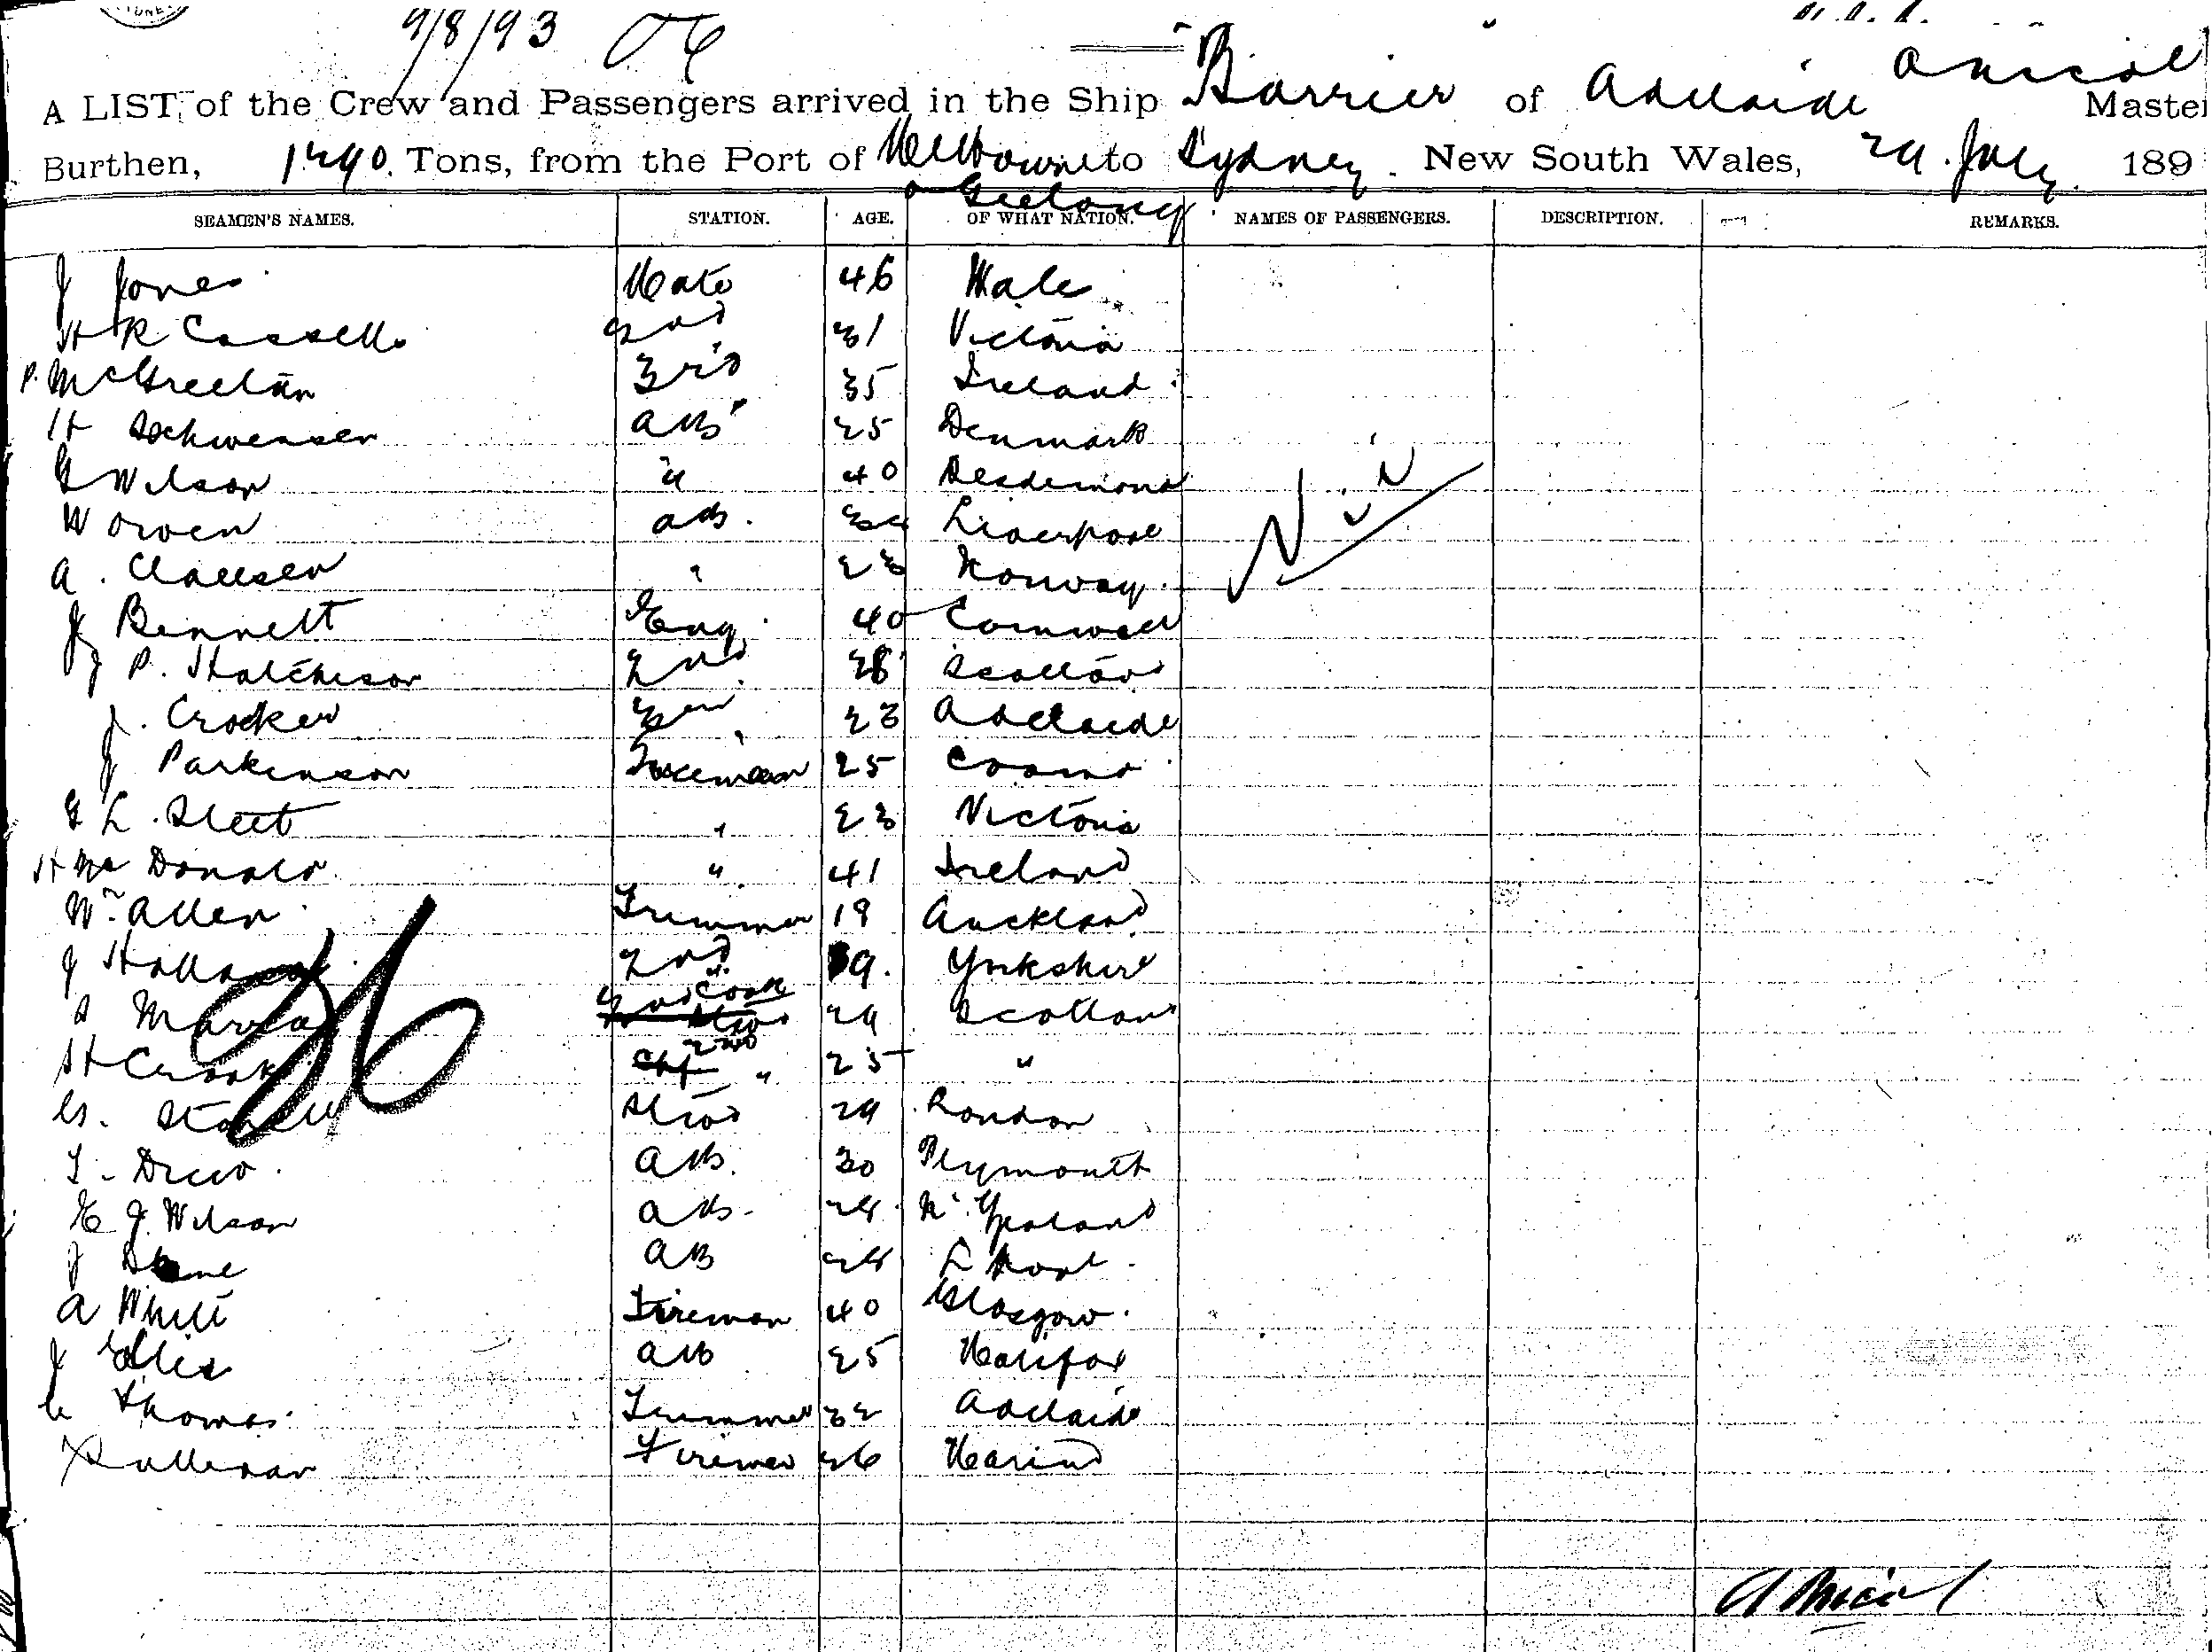 9/8/93
A LIST of the Crew and Passengers arrived in the Ship Barrier of Adelaide A Nicol Master
Burthen, 1290 Tons, from the Port of Melbourne to Sydney. New South Wales, 29 July 189
Geelong
SEAMEN'S NAMES. STATION. AGE. OF WHAT NATION. NAMES OF PASSENGERS. DESCRIPTION. REMARKS.
J Jones Mate 46 Wales
H R Cassells 2nd 31 Victoria
P. McGreetan 3rd 35 Ireland
H Schwensen AB 25 Denmark
G Wilson " 40
W Owen AB. Liverpool
A. Clausen " 23 Norway
J Bennett Eng. 40 Cornwall
J P. Hutchison 2nd 28 Scotland
J. Crocker 3rd 23 Adelaide
J Parkinson Fireman 25
G L. Sleet " 23 Victoria
H Mc Donald " 41 Ireland
Wm Allen Trimmer 19 Auckland
J 2nd 9. Yorkshire
2nd Cook
Stwd 29 Scotland
H Crook 2nd
Chf " 25 "
Stwd 29 London
T. Drew AB. 30 Plymouth
E J. Wilson AB. 24 N. Zealand
J AB 24 L pool
A White Fireman 40 Glasgow.
J Ellis AB 25 Halifax
C Thomas Trimmer 32 Adelaide
Sullivan Fireman 26
Nil
A Nicol